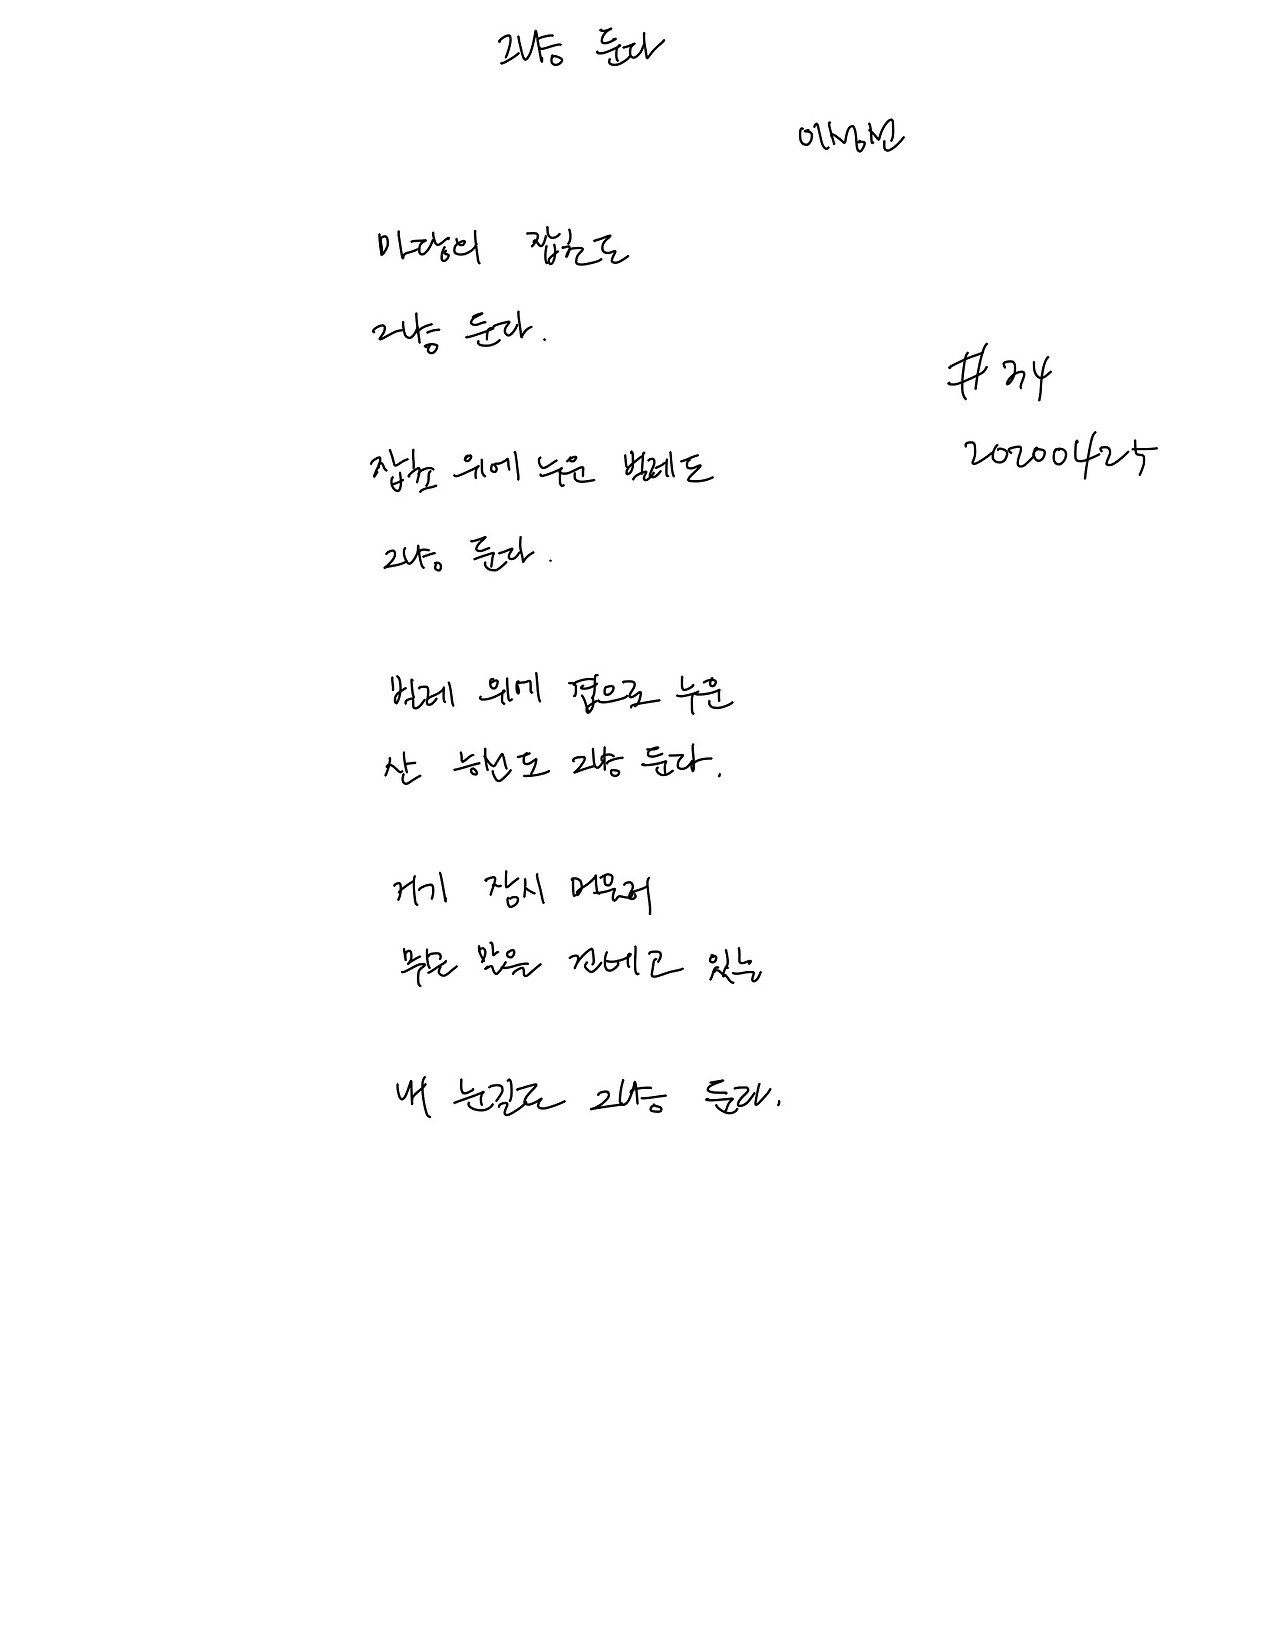 그냥 둔다
이성선
마당의 잡초도
그냥 둔다.
#34
20200425
잡초 위에 누운 벌레도
그냥 둔다.
벌레 위에 겹으로 누운
산 능선도 그냥 둔다.
거기 잠시 머물러
무슨 말을 건네고 있는
내 눈길도 그냥 둔다.